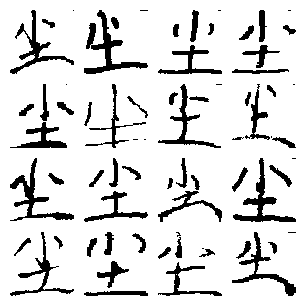 尘尘尘尘
尘尘尘尘
尘尘尘尘
尘尘尘尘